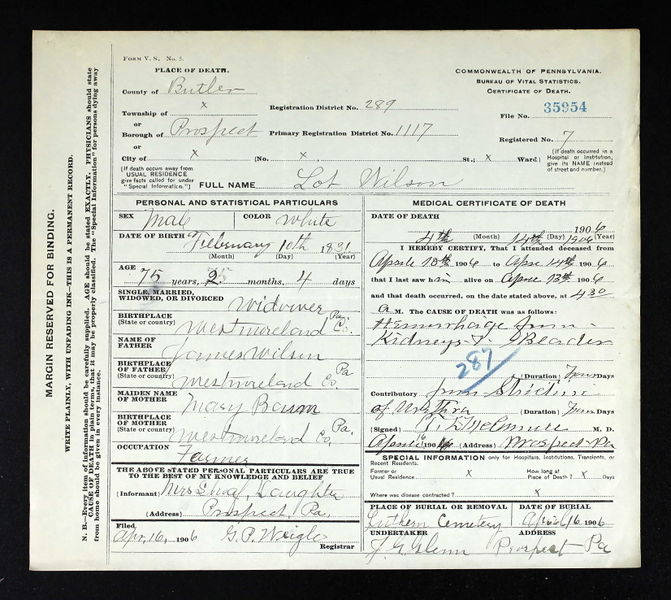 MARGIN RESERVED FOR BINDING.
WRITE PLAINLY, WITH UNFADING INK—THIS IS A PERMANENT RECORD.
N. B.—Every item of information should be carefully supplied. AGE should be stated EXACTLY. PHYSICIANS should state
CAUSE OF DEATH in plain terms, that it may be properly classified. The "Special Information" for persons dying away
from home should be given in every instance.
FORM V. S. No. 5.
PLACE OF DEATH.
County of Butler
Township of x
or
Borough of Prospect
or
City of x
(No. x St.; x Ward)
Registration District No. 289
Primary Registration District No. 1117
COMMONWEALTH OF PENNSYLVANIA.
BUREAU OF VITAL STATISTICS.
CERTIFICATE OF DEATH.
File No. 35954
Registered No. 7
[If death occurred in a
Hospital or Institution,
give its NAME instead
of street and number.]
[If death occurs away from
USUAL RESIDENCE
give facts called for under
"Special Information."]
FULL NAME Lot Wilson
PERSONAL AND STATISTICAL PARTICULARS
SEX Male COLOR White
DATE OF BIRTH February 10th 1831
(Month) (Day) (Year)
AGE 75 years, 2 months, 4 days
SINGLE, MARRIED,
WIDOWED, OR DIVORCED Widower
BIRTHPLACE
(State or country) Westmoreland Co.
NAME OF
FATHER James Wilson
BIRTHPLACE
OF FATHER
(State or country) Westmoreland Co Pa
MAIDEN NAME
OF MOTHER Mary Baum
BIRTHPLACE
OF MOTHER
(State or country) Westmoreland Co, Pa.
OCCUPATION Farmer
THE ABOVE STATED PERSONAL PARTICULARS ARE TRUE
TO THE BEST OF MY KNOWLEDGE AND BELIEF
(Informant) Mrs Daughter
(Address) Prospect, Pa.
Filed Apr. 16, 1906
Registrar
MEDICAL CERTIFICATE OF DEATH
DATE OF DEATH
4th 14th 1906
(Month) (Day) (Year)
I HEREBY CERTIFY, That I attended deceased
from 13th 1906 to 14th 1906
that I last saw him alive on 13th 1906
and that death occurred, on the date stated above, at 430
a M. The CAUSE OF DEATH was as follows:
Hemorrhage from
Kidneys & Bladder
287
(Duration) Days
Contributory from Stricture
of Urethra (Duration) Days
(Signed) M. D.
1906 (Address) Prospect Pa
SPECIAL INFORMATION only for Hospitals, Institutions, Transients, or
Recent Residents.
Former or
Usual Residence x
How long at
Place of Death? x Days
Where was disease contracted? x
PLACE OF BURIAL OR REMOVAL
Lutheran Cemetery
DATE OF BURIAL
16 1906
UNDERTAKER
J. G. Glenn Prospect Pa